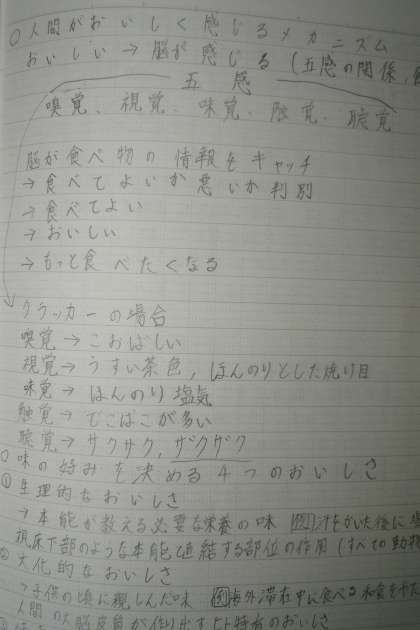 ○人間がおいしく感じるメカニズム
おいしい→脳が感じる(五感の関係,
五感
嗅覚、視覚、味覚、触覚、聴覚
脳が食べ物の情報をキャッチ
→食べてよいか悪いか判別
→食べてよい
→おいしい
→もっと食べたくなる
クラッカーの場合
嗅覚→こおばしい
視覚→うすい茶色,ほんのりとした焼け目
味覚→ほんのり塩気
触覚→でこぼこが多い
聴覚→サクサク,ザクザク
○味の好みを決める4つのおいしさ
①生理的なおいしさ
→本能が教える必要な栄養の味 例汗をかいた後に塩
視床下部のような本能と直結する部位の作用(すべての動物
②文化的なおいしさ
→子供の頃に親しんだ味 例海外滞在中に食べる和食をやた
人間の大脳皮質が作り出す